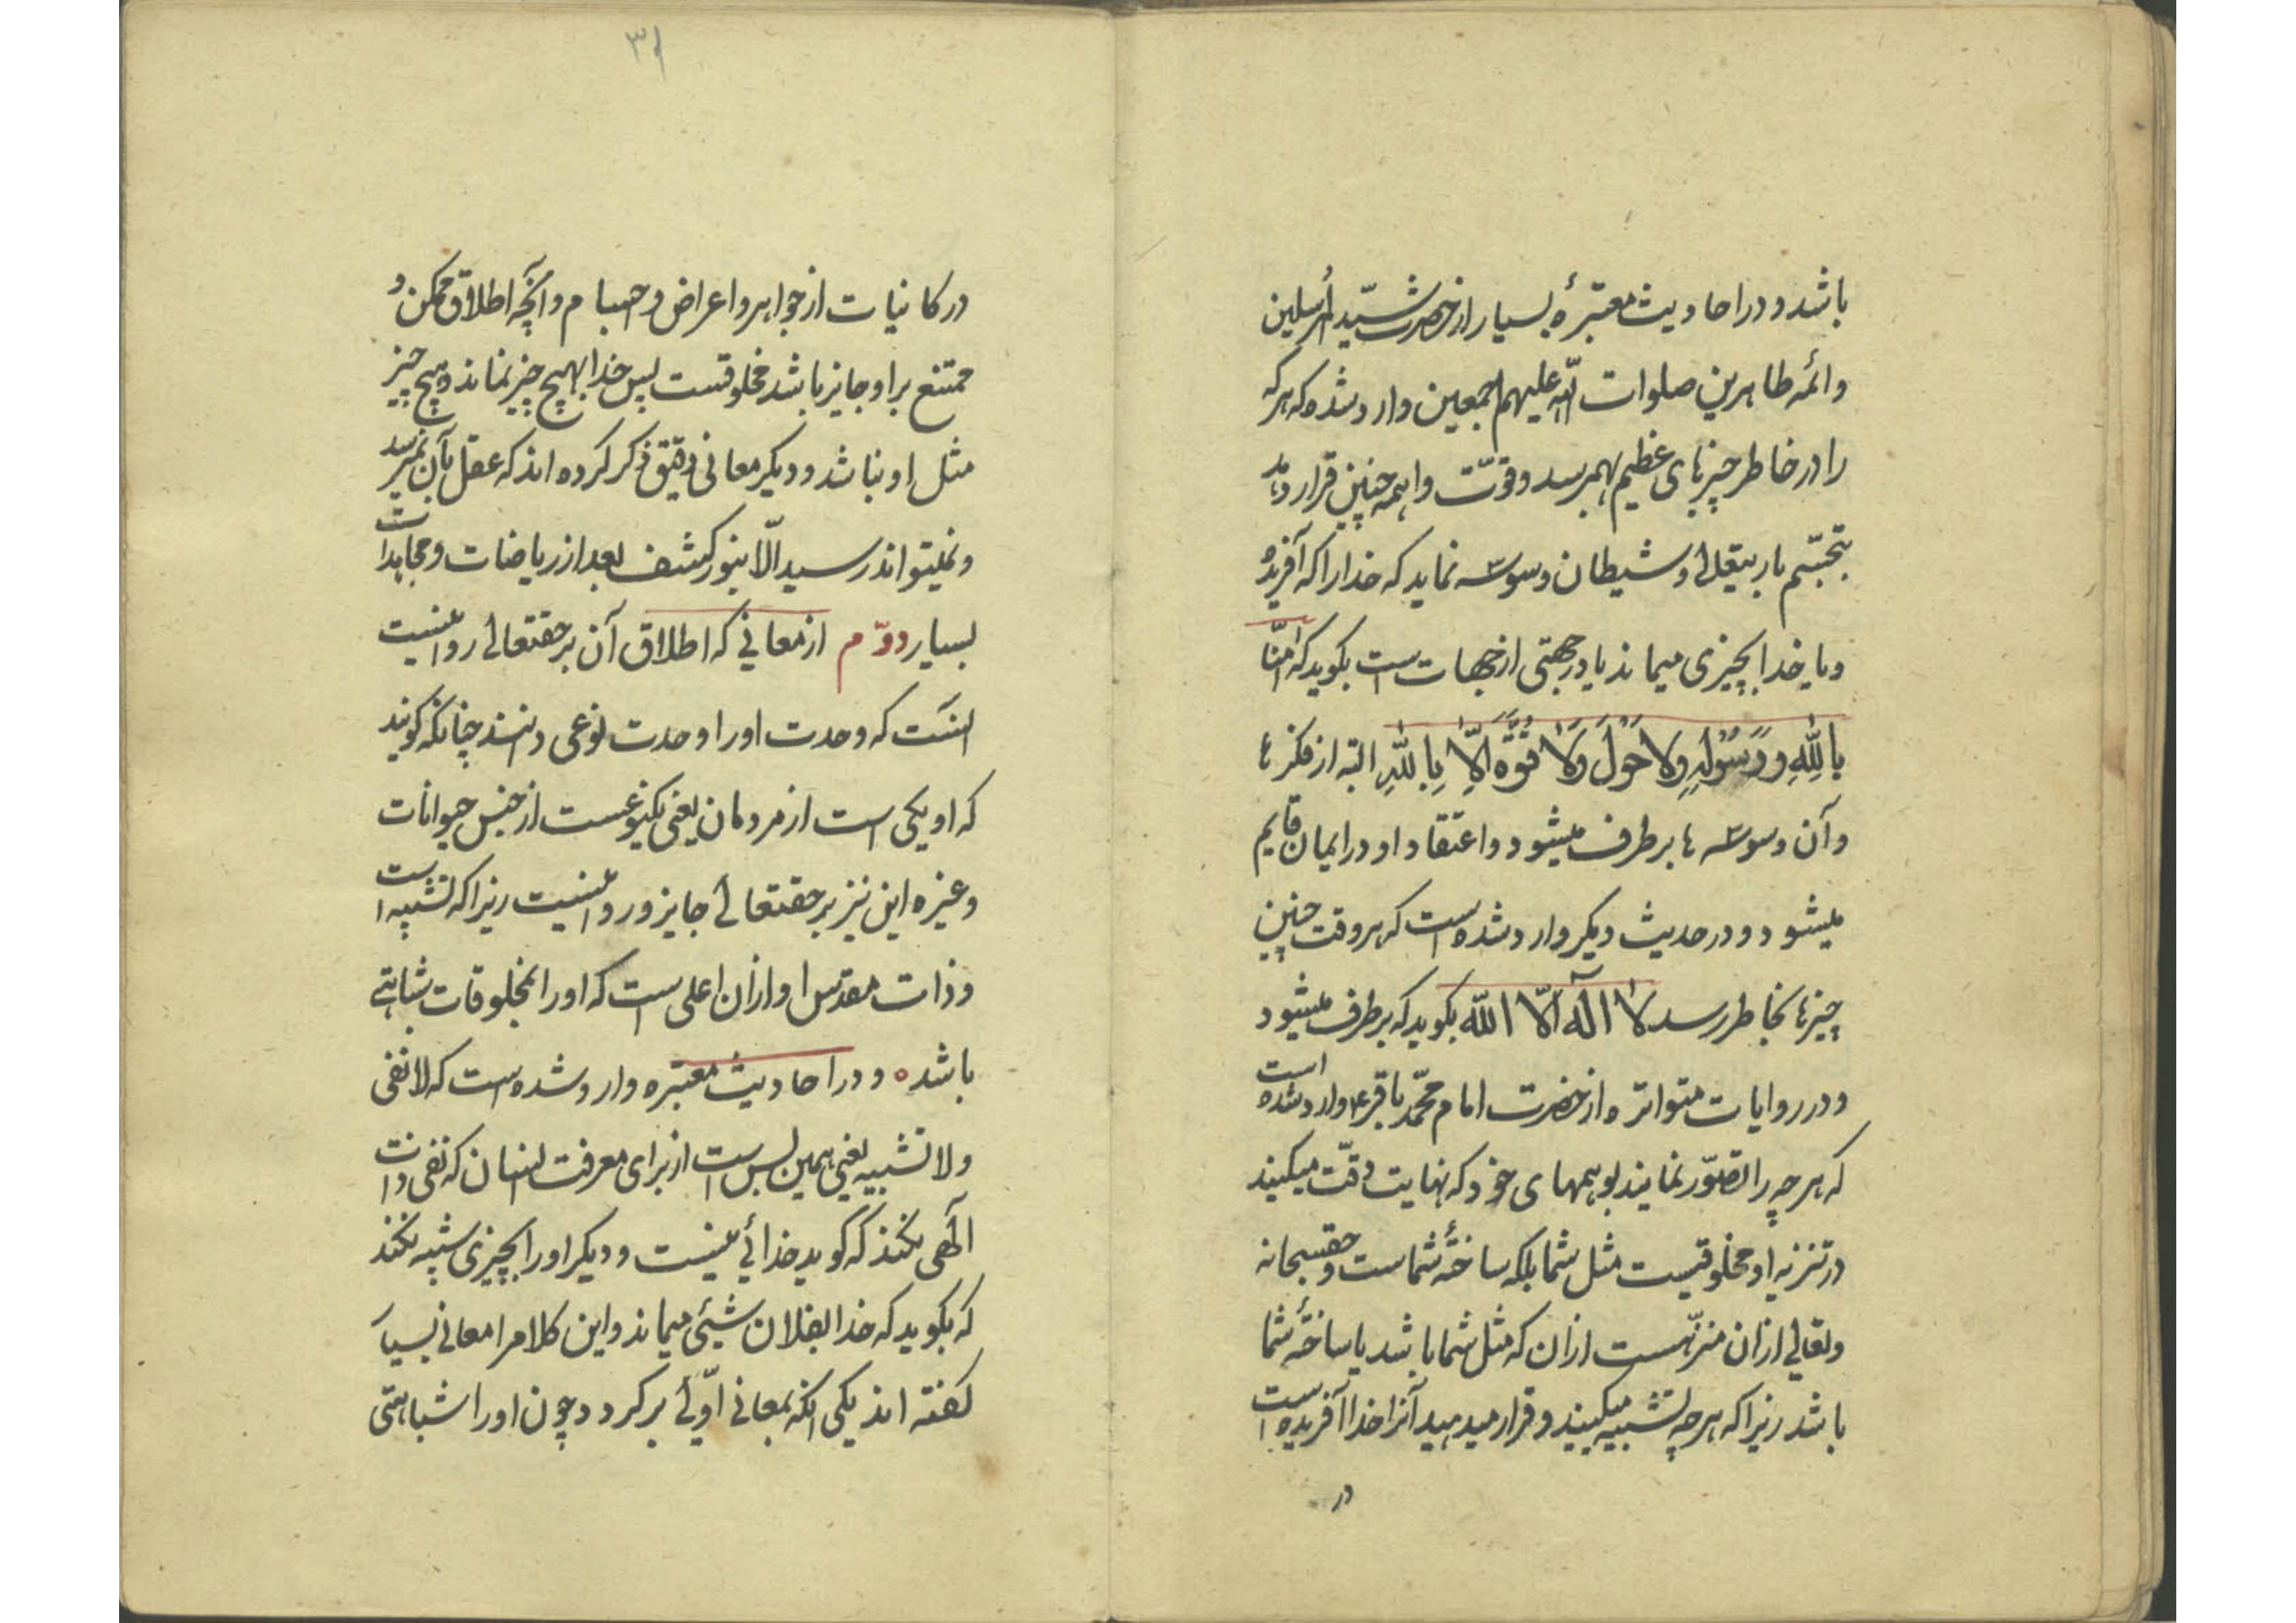 باشد و در احادیث معتبرهٔ بسیار از حضرت سیّد المرسلین
و ائمه طاهرین صلوات اللّه علیهم اجمعین وارد شده که هر که
را در خاطر چیزهای عظیم بهمرسد و قوّت واهمه چنین قرار دهد
بتجسّم باریتعالی و شیطان وسوسه نماید که خدا را که آفریده
و یا خدا بچیزی میماند یا در جهتی از جهات است بگوید که امنّا
باللهِ و رَسُولِهِ ولا حَولَ وَلا قُوَّه اِلاّ بِاللهِ البته از فکرها
و آن وسوسه ها برطرف میشود و اعتقاد او در ایمان قایم
میشود و در حدیث دیکر وارد شده است که هر وقت چنین
چیزها بخاطر رسد لا اله الّا اللّه بکوید که برطرف میشود
و در روایات متواتره از حضرت امام محمّد باقر ع وارد شده است
که هر چه را تصوّر نمایند بوهمهای خود که نهایت دقّت میکنید
در تنزیه او مخلوقیست مثل شما بلکه ساختهٔ شماست و حقسبحانه
و تعالی از ان منزّهست از ان که مثل شما باشد یا ساختهٔ شما
باشد زیرا که هر چه تشبیه میکنید و قرار میدهید آنرا خدا آفریده است
در
۳۱
در کانیات از جواهر و اعراض و اجسام و آنچه اطلاق ممکن و
ممتنع بر او جایز باشد مخلوقست پس خدا بهیچ چیز نماند و هیچ چیز
مثل او نباشد و دیکر معانی دقیق ذکر کرده اند که عقل بآن نمیرسد
و نمیتواند رسید الّا بنور کشف بعد از ریاضات و مجاهدات
بسیار دوّم از معانی که اطلاق آن بر حقتعالی روا نیست
انست که وحدت او را وحدت نوعی دانند چنانکه کویند
که او یکی است از مردمان یعنی یکنوعست از جنس حیوانات
و غیره این نیز بر حقتعالی جایز و روا نیست زیرا که تشبیه است
و ذات مقدس او از ان اعلی است که او را بمخلوقات شباهتی
باشد ه و در احادیث معتبره وارد شده است که لا نفی
ولا تشبیه یعنی همین بس است از برای معرفت انسان که نفی ذات
الهی نکند که کوید خدائی نیست و دیکر او را بچیزی شبیه نکند
که بکوید که خدا بفلان شیئی میماند و این کلام را معانی بسیار
کفته اند یکی انکه بمعانی اوّلی بر کردد چون او را شباهتی